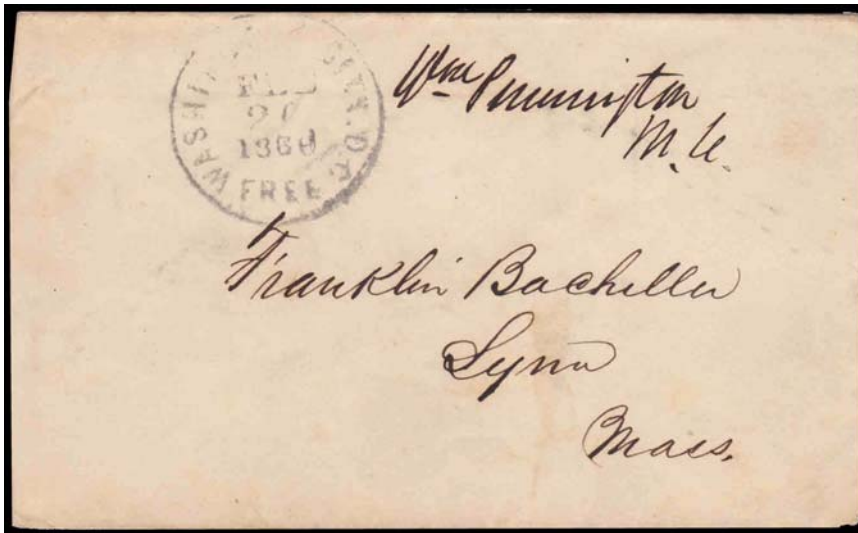 WASHINGTON CITY. D.C.
FEB
1860
FREE
Wm Pennington
M.C.
Franklin Bacheller
Lynn
Mass.